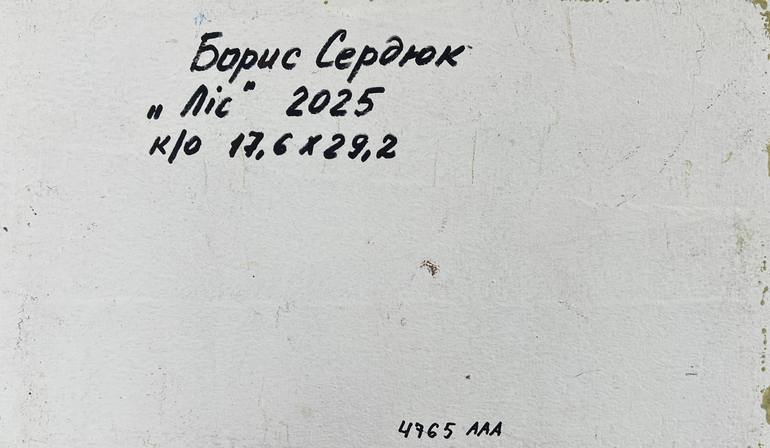 Борис Сердюк
„Ліс" 2025
к/о 17,6 х 29,2
4765 ААА